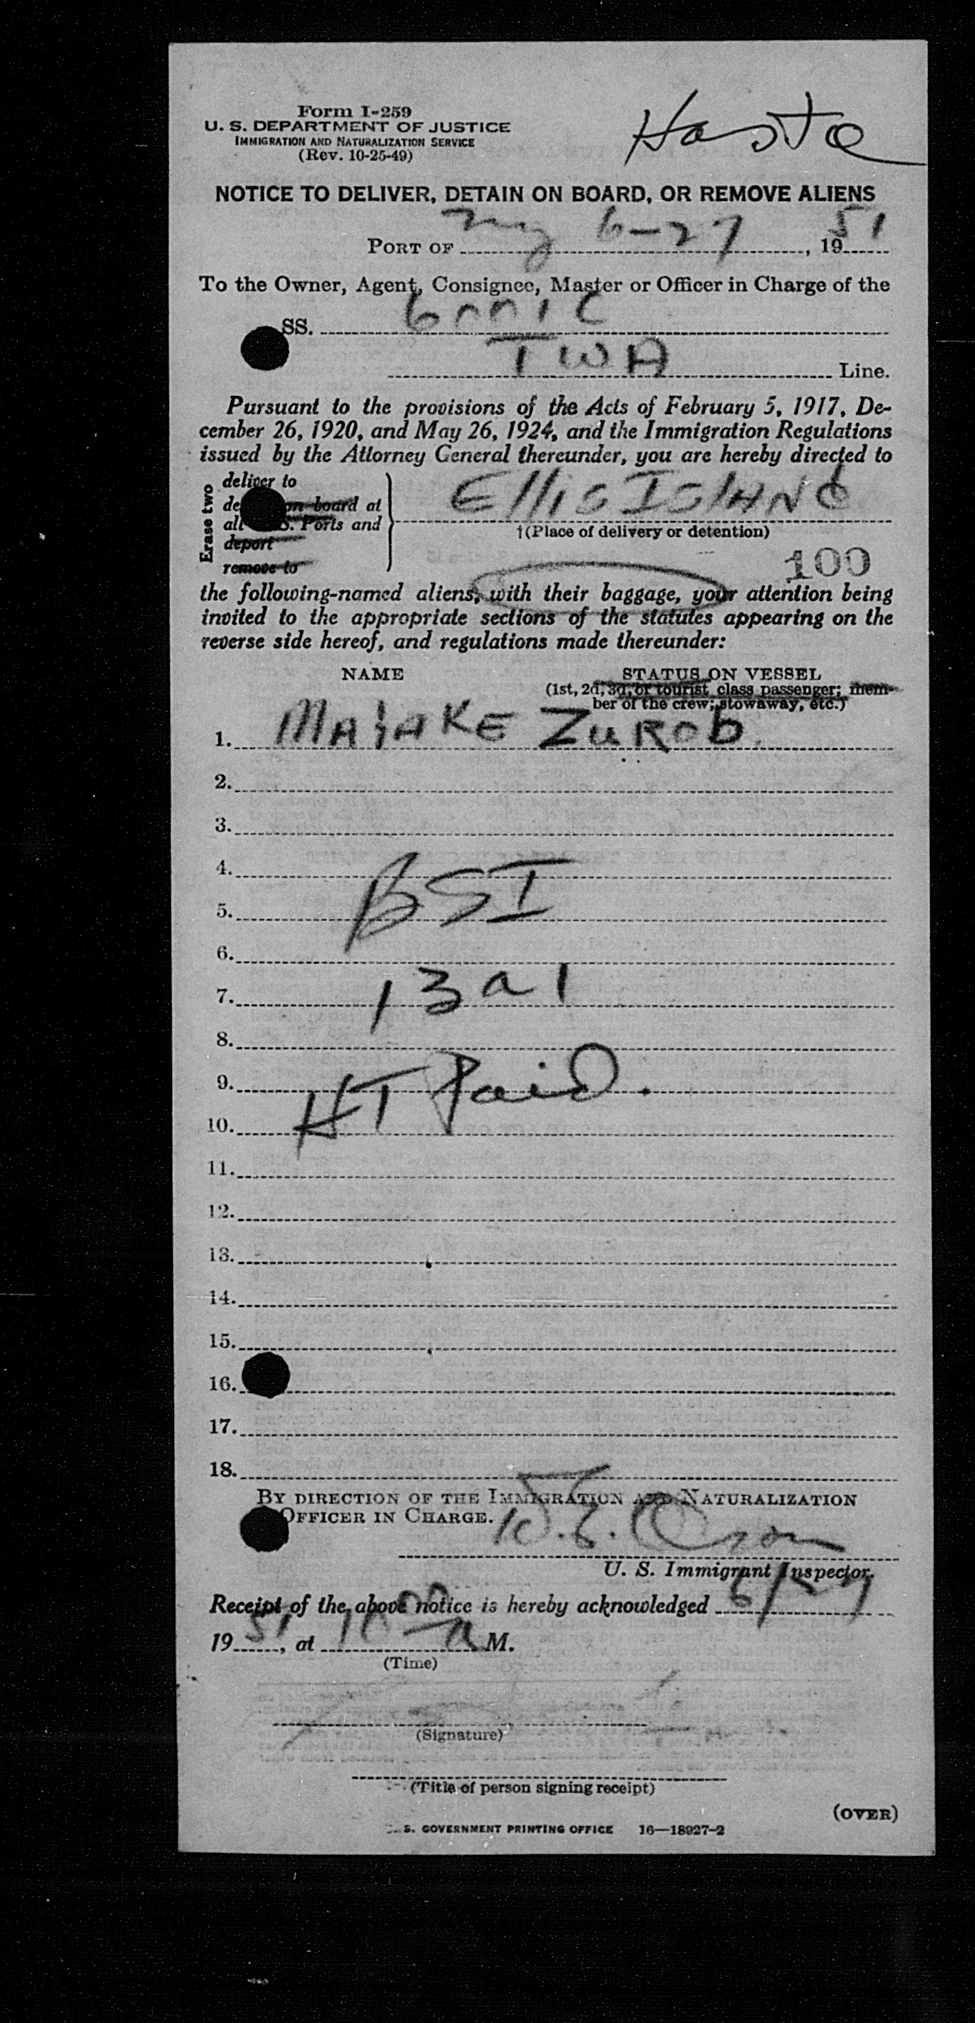 Form I-259
U. S. DEPARTMENT OF JUSTICE
IMMIGRATION AND NATURALIZATION SERVICE
(Rev. 10-25-49)
NOTICE TO DELIVER, DETAIN ON BOARD, OR REMOVE ALIENS
PORT OF NY 6-27, 1951
To the Owner, Agent, Consignee, Master or Officer in Charge of the
SS.
TWA Line.
Pursuant to the provisions of the Acts of February 5, 1917, De-
cember 26, 1920, and May 26, 1924, and the Immigration Regulations
issued by the Attorney General thereunder, you are hereby directed to
Erase two
deliver to
on board at
all Ports and
deport
remove to
Ellis ISLAND
†(Place of delivery or detention)
100
the following-named aliens, with their baggage, your attention being
invited to the appropriate sections of the statutes appearing on the
reverse side hereof, and regulations made thereunder:
NAME
STATUS ON VESSEL
(1st, 2d, 3d, or tourist class passenger; mem-
ber of the crew; stowaway, etc.)
1. ZUROB
2.
3.
4.
5. BSI
6.
7. 13a1
8.
9. HT Paid.
10.
11.
12.
13.
14.
15.
16.
17.
18.
BY DIRECTION OF THE IMMIGRATION AND NATURALIZATION
OFFICER IN CHARGE.
U. S. Immigrant Inspector.
Receipt of the above notice is hereby acknowledged 6/27
1951, at 10 A M.
(Time)
(Signature)
(Title of person signing receipt)
(OVER)
S. GOVERNMENT PRINTING OFFICE 16—18927-2